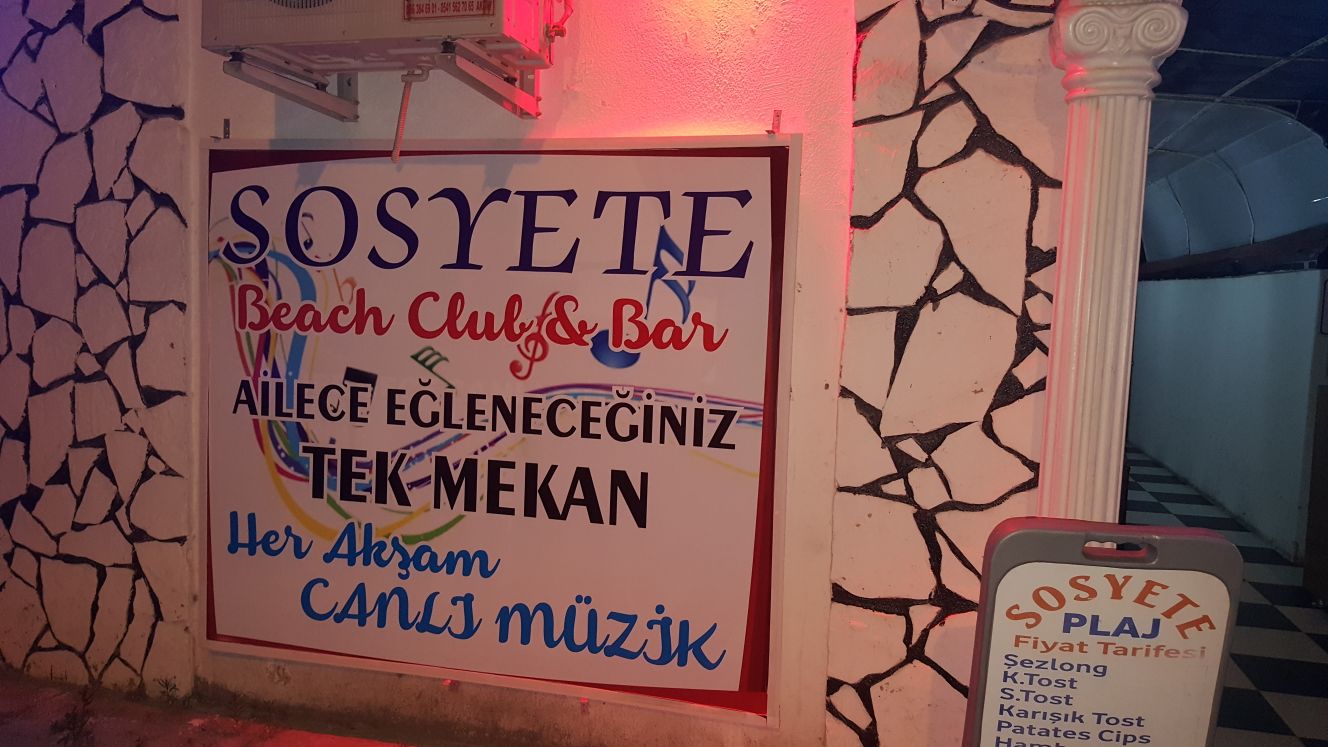 SOSYETE
Beach Club & Bar
AİLECE EĞLENECEĞİNİZ
TEK MEKAN
Her Akşam
CANLI MÜZİK
SOSYETE
PLAJ
Fiyat Tarifesi
Şezlong
K.Tost
S.Tost
Karışık Tost
Patates Cips